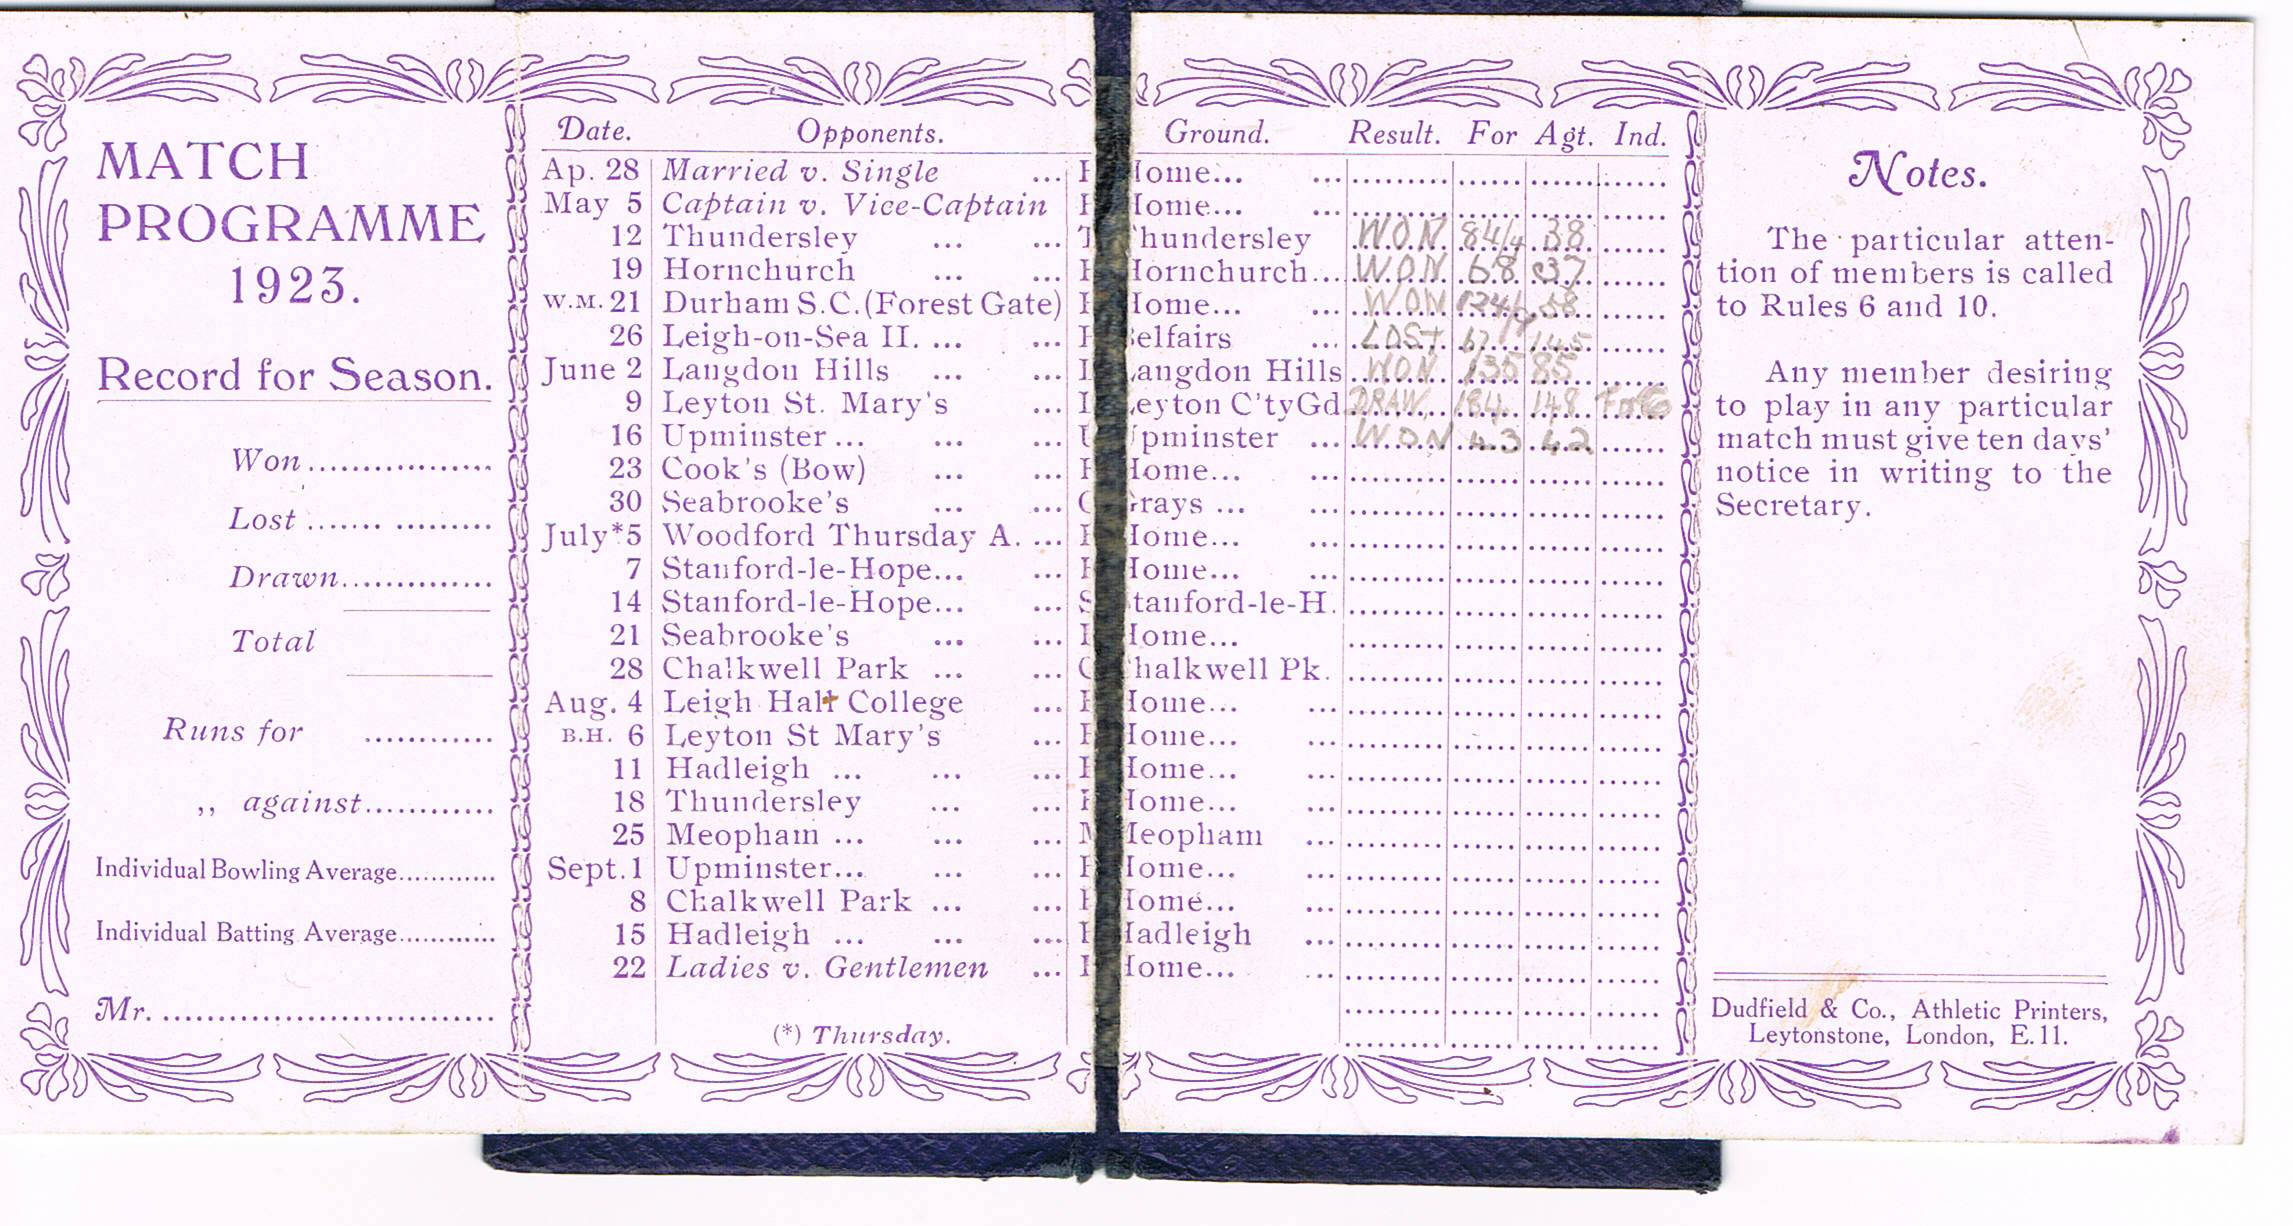 MATCH
PROGRAMME
1923.
Record for Season.
Won..................
Lost ....... .........
Drawn..............
Total
Runs for ............
,, against............
Individual Bowling Average............
Individual Batting Average............
Mr. ..............................
Date. Opponents. Ground. Result. For Agt. Ind.
Ap. 28 Married v. Single ... Home... ...
May 5 Captain v. Vice-Captain Home... ...
12 Thundersley ... ... Thundersley WON 84/4 38
19 Hornchurch ... ... Hornchurch... WON 68 37
W.M. 21 Durham S.C.(Forest Gate) Home... ... WON 58
26 Leigh-on-Sea II. ... ... Belfairs ... LOST 145
June 2 Langdon Hills ... ... Langdon Hills WON 135 85
9 Leyton St. Mary's ... Leyton C'tyGd DRAW 184 148
16 Upminster... ... ... Upminster ... WON 43 42
23 Cook's (Bow) ... ... Home... ...
30 Seabrooke's ... ... Grays ... ...
July *5 Woodford Thursday A. ... Home... ...
7 Stanford-le-Hope... ... Home... ...
14 Stanford-le-Hope... ... Stanford-le-H.
21 Seabrooke's ... ... Home... ...
28 Chalkwell Park ... ... Chalkwell Pk.
Aug. 4 Leigh Hall College ... Home... ...
B.H. 6 Leyton St Mary's ... Home... ...
11 Hadleigh ... ... ... Home... ...
18 Thundersley ... ... Home... ...
25 Meopham ... ... ... Meopham ...
Sept. 1 Upminster... ... ... Home... ...
8 Chalkwell Park ... ... Home... ...
15 Hadleigh ... ... ... Hadleigh ...
22 Ladies v. Gentlemen ... Home... ...
(*) Thursday.
Notes.
The particular atten-
tion of members is called
to Rules 6 and 10.
Any member desiring
to play in any particular
match must give ten days'
notice in writing to the
Secretary.
Dudfield & Co., Athletic Printers,
Leytonstone, London, E.11.